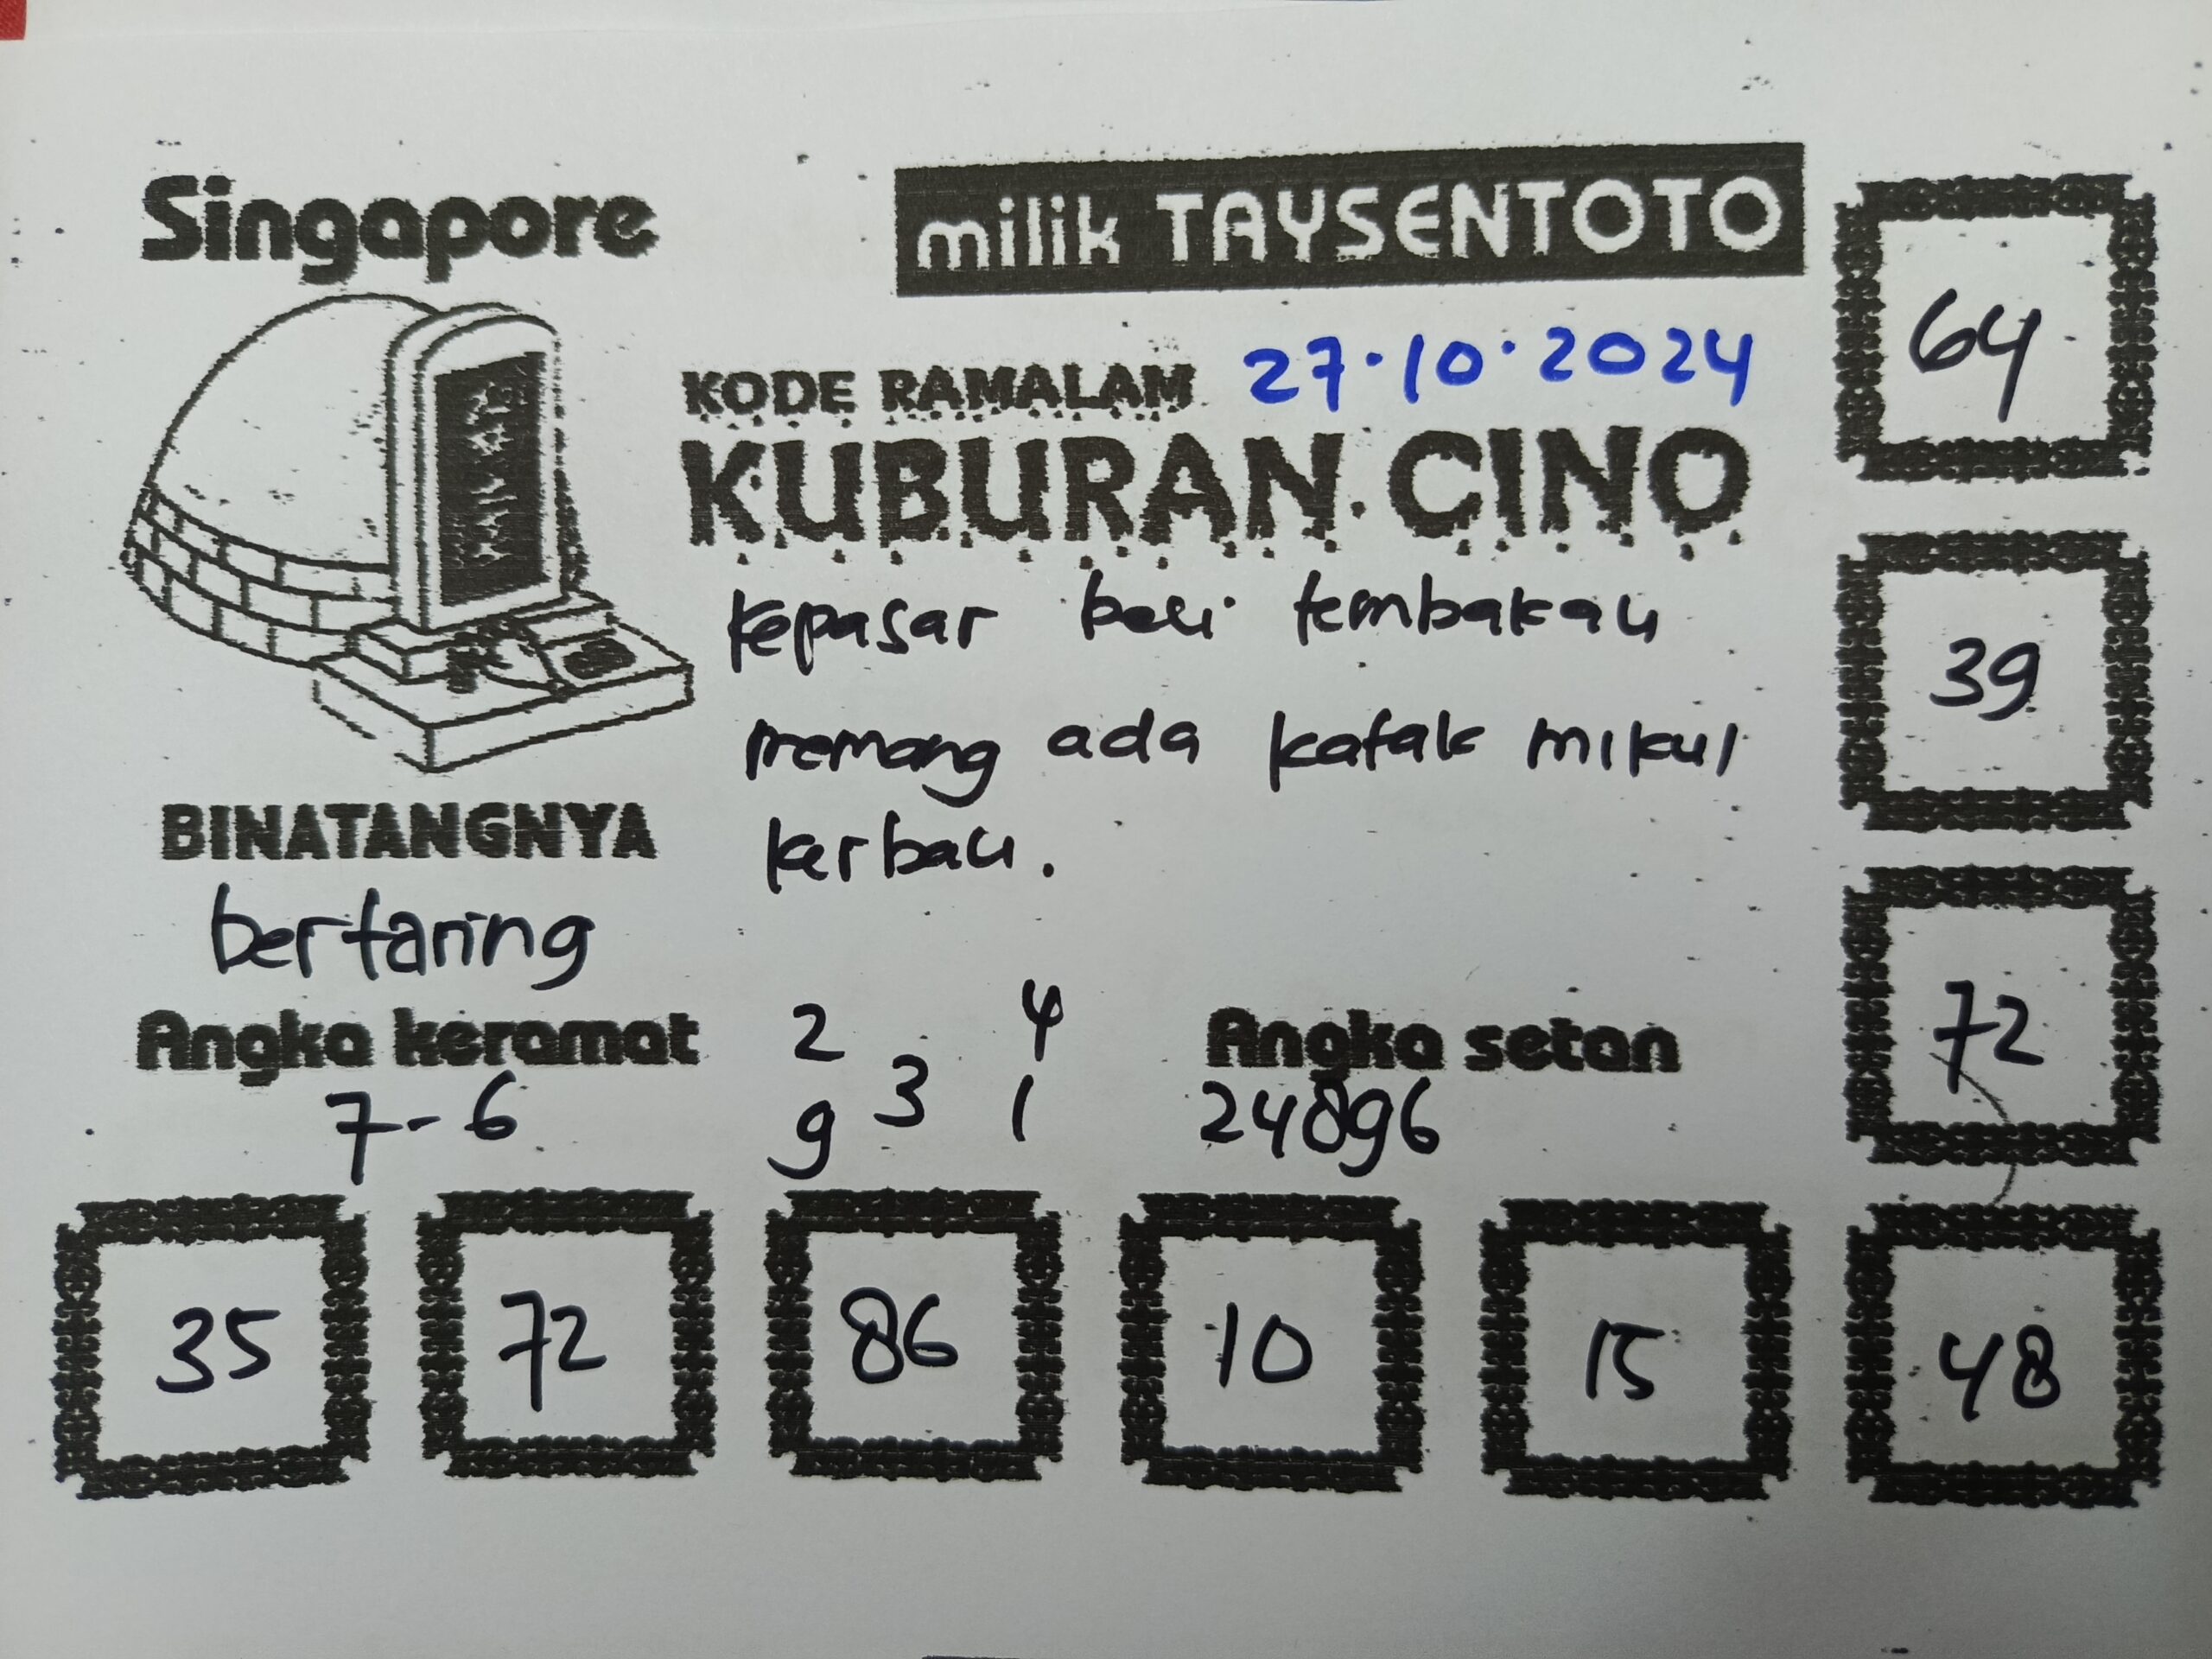 Singapore
milik TAYSENTOTO
KODE RAMALAM 27·10·2024
KUBURAN CINO
kepasar beli tembakau
memang ada katak mikul
kerbau.
BINATANGNYA
bertaring
Angka keramat
7-6
2 4
3
9 1
Angka setan
24896
64
39
72
35 72 86 10 15 48